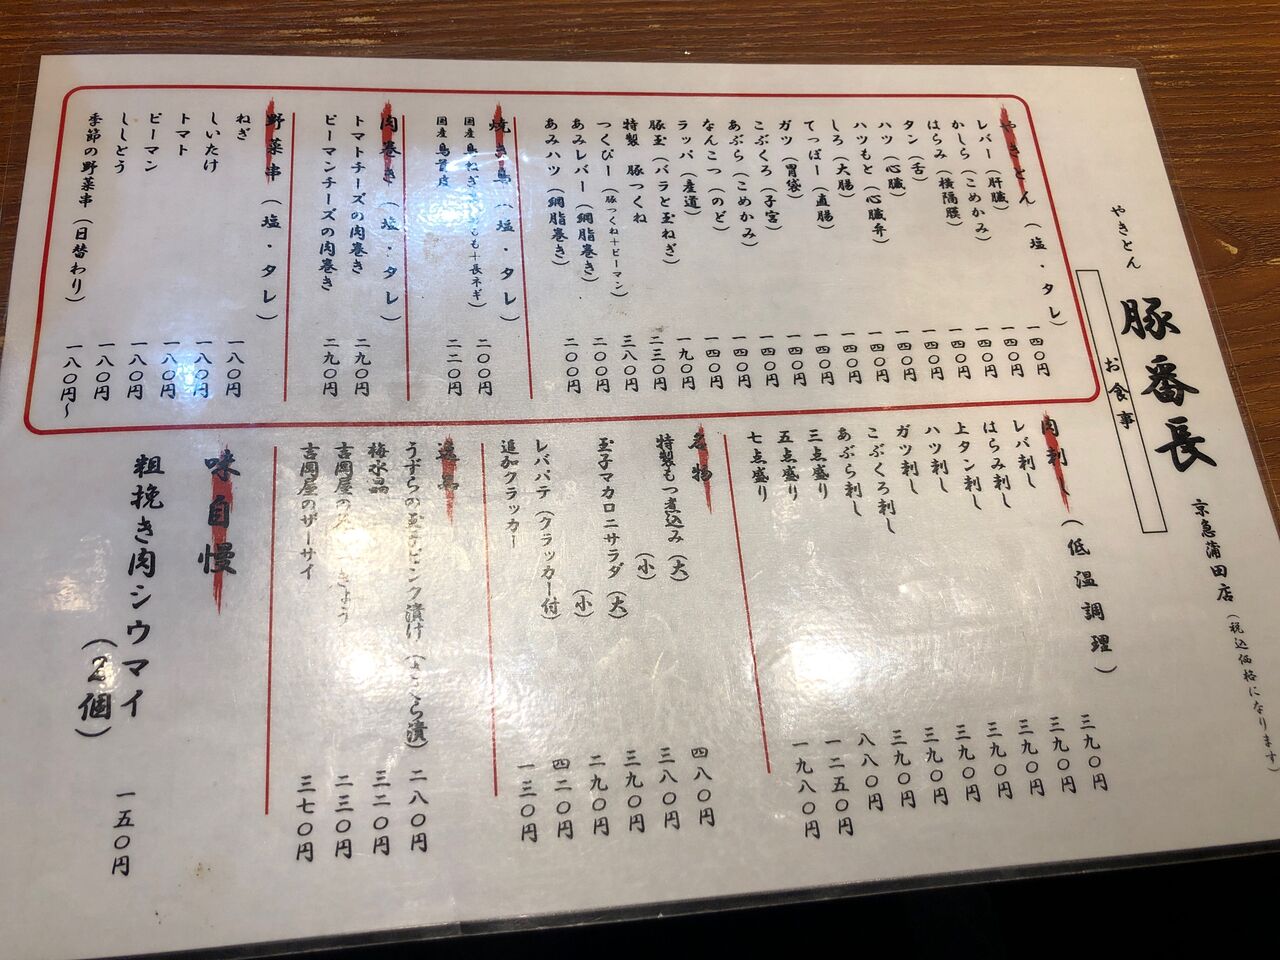 やきとん 豚番長 京急蒲田店 (税込価格になります)
お食事
やきとん (塩・タレ)
レバー(肝臓) 一四〇円
かしら(こめかみ) 一四〇円
はらみ(横隔膜) 一四〇円
タン(舌) 一四〇円
ハツ(心臓) 一四〇円
ハツもと(心臓弁) 一四〇円
しろ(大腸) 一四〇円
てっぽー(直腸) 一四〇円
ガツ(胃袋) 一四〇円
こぶくろ(子宮) 一四〇円
あぶら(こめかみ) 一四〇円
なんこつ(のど) 一四〇円
ラッパ(産道) 一四〇円
豚玉(バラと玉ねぎ) 一九〇円
特製 豚つくね 二三〇円
つくぴー(豚つくね+ピーマン) 三八〇円
あみレバー(網脂巻き) 二〇〇円
あみハツ(網脂巻き) 二〇〇円
焼き鳥 (塩・タレ)
国産鳥ねぎ も+長ネギ) 二〇〇円
国産鳥首皮 二二〇円
肉巻き (塩・タレ)
トマトチーズの肉巻き 二九〇円
ピーマンチーズの肉巻き 二九〇円
野菜串 (塩・タレ)
ねぎ 一八〇円
しいたけ 一八〇円
トマト 一八〇円
ピーマン 一八〇円
ししとう 一八〇円
季節の野菜串(日替わり) 一八〇円〜
肉刺し (低温調理)
レバ刺し 三九〇円
はらみ刺し 三九〇円
上タン刺し 三九〇円
ハツ刺し 三九〇円
ガツ刺し 三九〇円
こぶくろ刺し 三九〇円
あぶら刺し 三九〇円
三点盛り 八八〇円
五点盛り 一二五〇円
七点盛り 一九八〇円
名物
特製もつ煮込み(大) 四八〇円
(小) 三八〇円
玉子マカロニサラダ(大) 三九〇円
(小) 二九〇円
レバパテ(クラッカー付) 四二〇円
追加クラッカー 一三〇円
逸品
うずらの玉子ピンク漬け(さくら漬) 二八〇円
梅水晶 三二〇円
吉岡屋の きょう 二三〇円
吉岡屋のザーサイ 三七〇円
味自慢
粗挽き肉シウマイ
(2個) 一五〇円